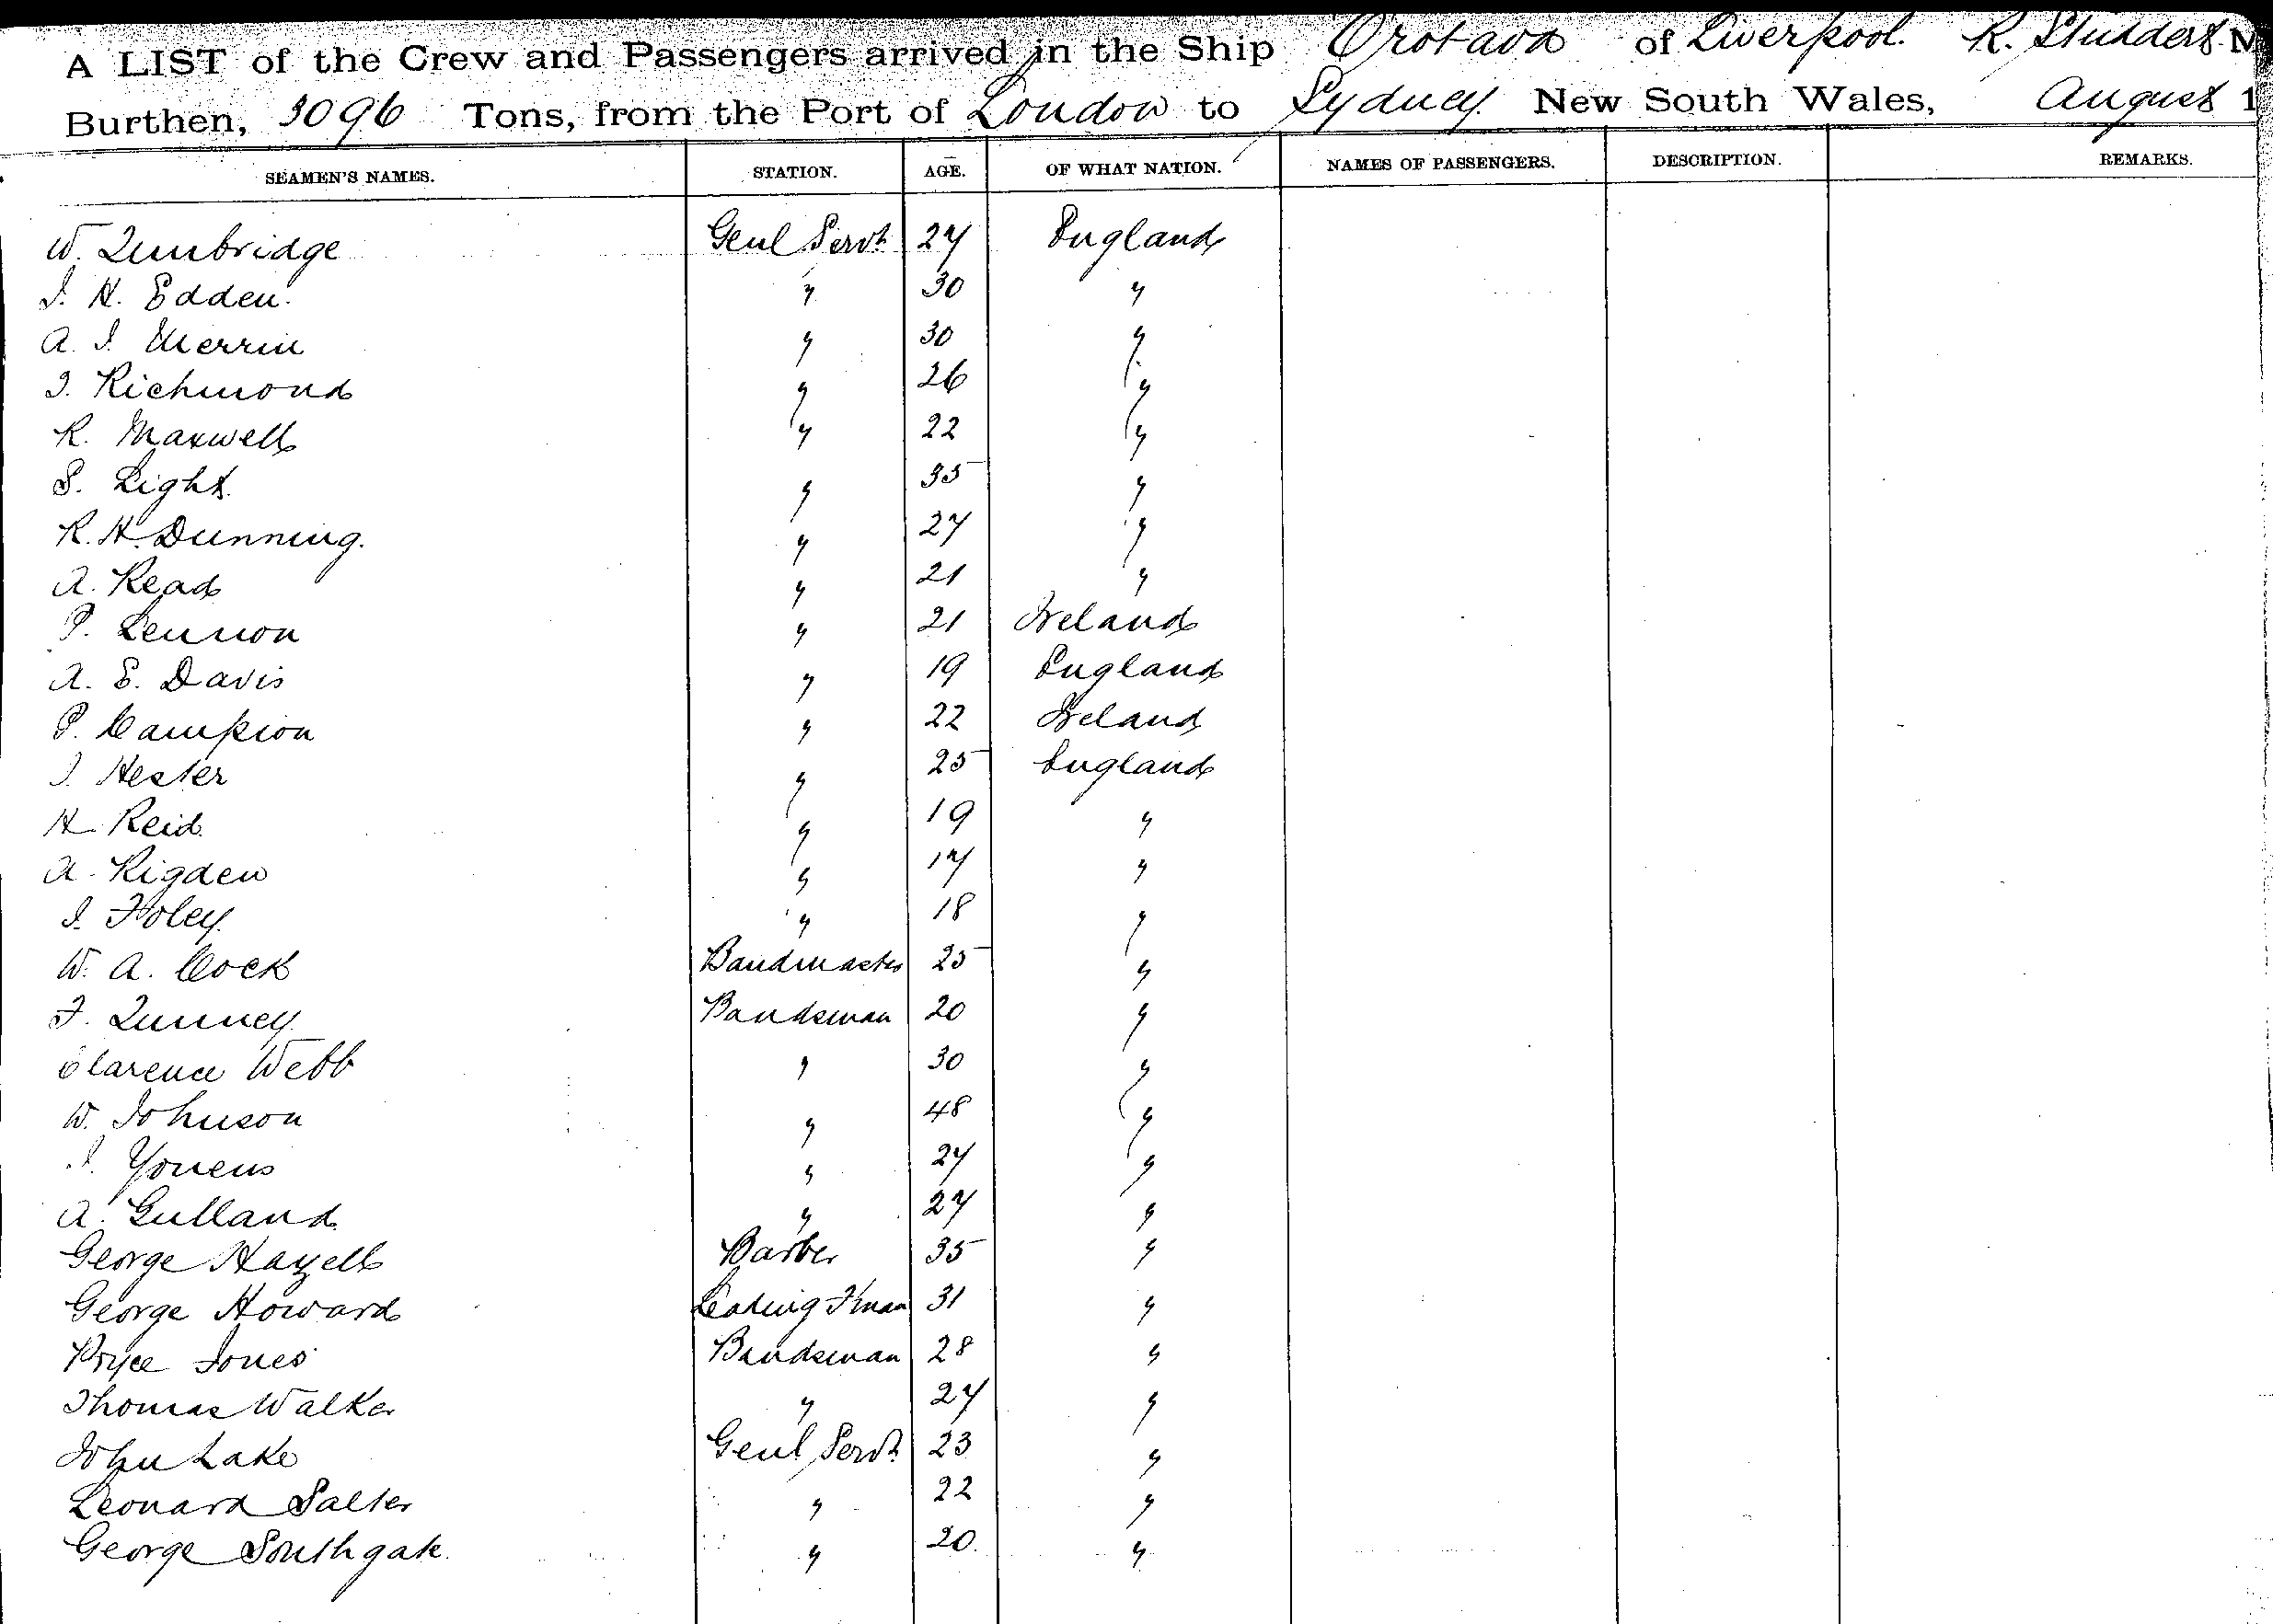 A LIST of the Crew and Passengers arrived in the Ship Orotava of Liverpool. R. Studdert M
Burthen, 3096 Tons, from the Port of London to Sydney. New South Wales, August 1
SEAMEN'S NAMES. STATION. AGE. OF WHAT NATION. NAMES OF PASSENGERS. DESCRIPTION. REMARKS.
W. Lumbridge Genl Servt 27 England
J. H. Edden. " 30 "
A. J. Merrin " 30 "
J. Richmond " 26 "
R. Maxwell " 22 "
S. Light. " 35 "
R. H. Dunning. " 27 "
A. Read " 21 "
P. Lennon " 21 Ireland
A. E. Davis " 19 England
P. Campion " 22 Ireland
J. Hester " 25 England
H. Reid. " 19 "
A. Rigden " 17 "
J. Foley. " 18 "
W. A. Cock Bandmaster 25 "
F. Lunney. Bandsman 20 "
Clarence Webb " 30 "
W. Johnson " 48 "
J. Youens " 27 "
A. Gulland. " 27 "
George Hazell Barber 35 "
George Howard Leading Fman 31 "
Pryce Jones Bandsman 28 "
Thomas Walker " 27 "
John Lake Genl Servt 23 "
Leonard Salter " 22 "
George Southgate. " 20. "